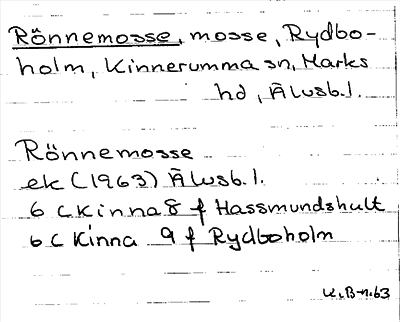 Rönnemosse, mosse, Rydbo-
holm, Kinnerumma sn, Marks
hd, Älvsb.l.
Rönnemosse
ek (1963) Älvsb.l.
6 C Kinna 8 f Hassmundshult
6 C Kinna 9 f Rydboholm